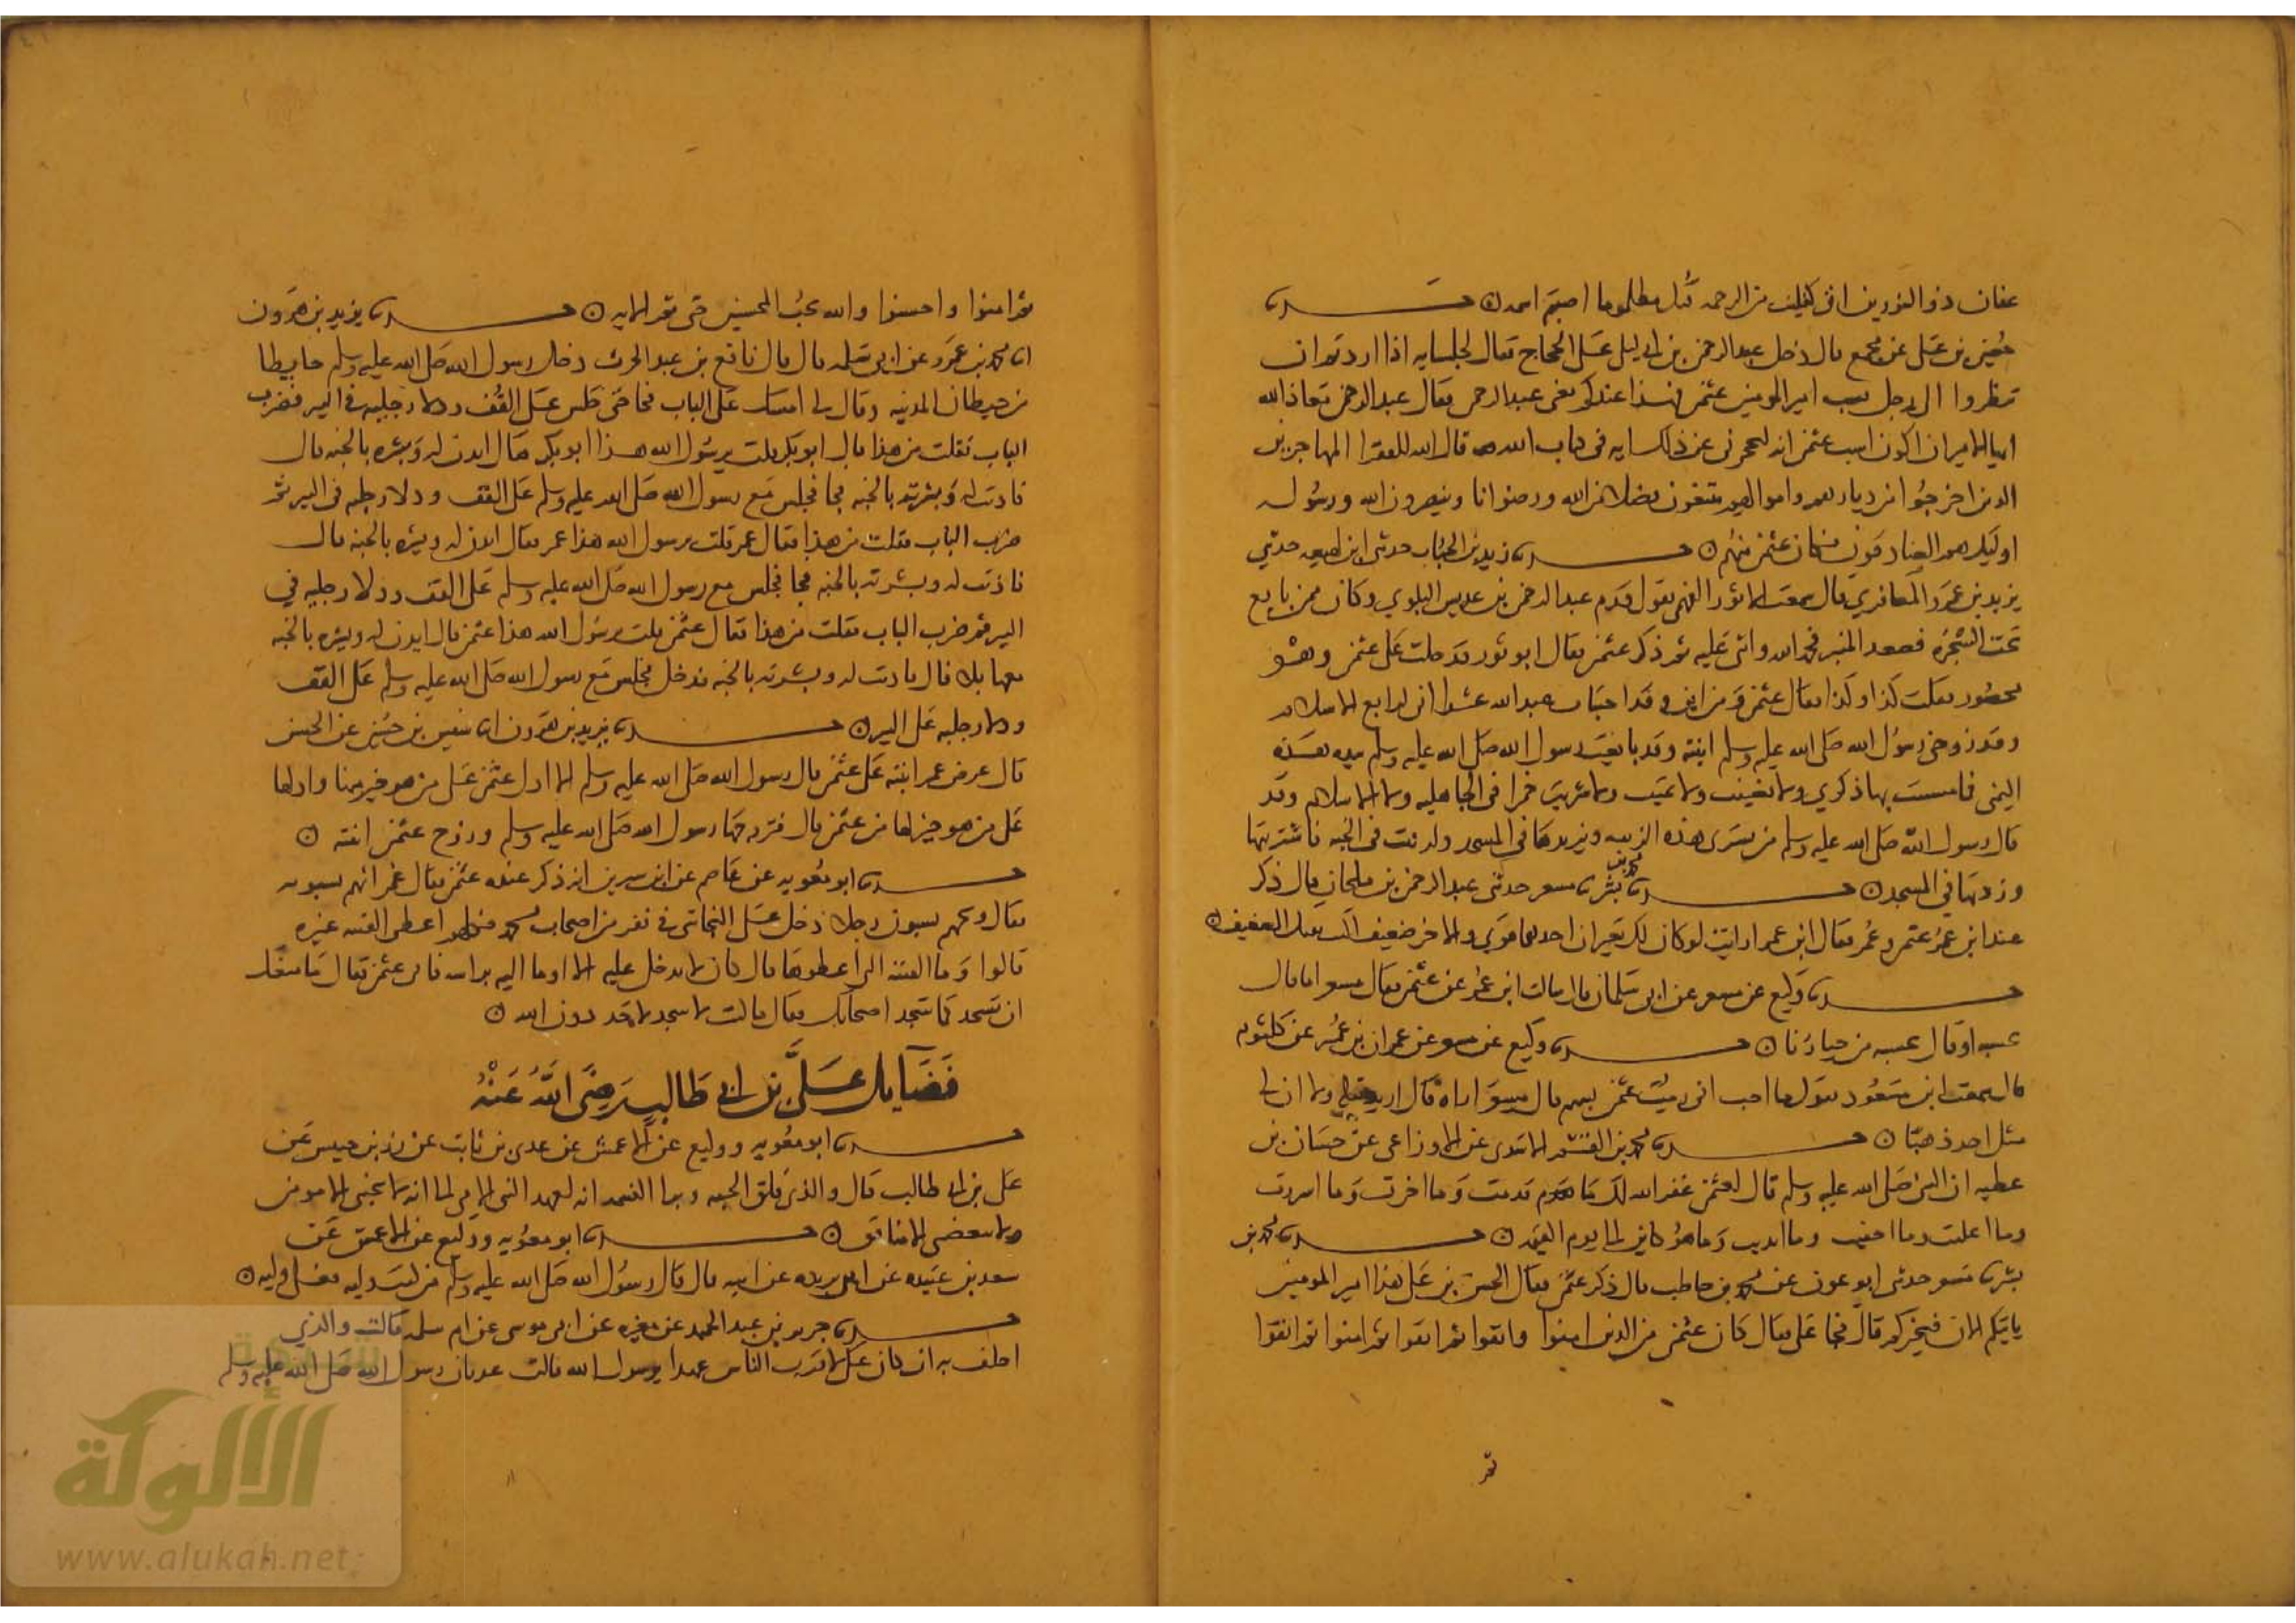 عفان ذو النورين اوتي كفلين من الرحمة قتل مظلوما اصبتم اسمه ٥ حــــدثنا
حسين بن علي عن مجمع قال دخل عبد الرحمن بن ابي ليلى على الحجاج فقال لجلسايه اذا اردتم ان
تنظروا الى رجل يسب امير المومنين عثمن فهذا عندكم يعني عبد الرحمن فقال عبد الرحمن معاذ الله
ايها الامير ان اكون اسب عثمن انه ليحجزني عن ذلك اية في كتاب الله قال الله للفقرا المهاجرين
الذين اخرجوا من ديارهم واموالهم يبتغون فضلا من الله ورضوانا وينصرون الله ورسوله
اوليك هم الصادقون فكان عثمن منهم ٥ حــــدثنا زيد بن الحباب حدثني ابن لهيعة حدثني
يزيد بن عمرو المعافري قال سمعت ابا ثور الفهمي يقول قدم عبد الرحمن بن عديس البلوي وكان ممن بايع
تحت الشجرة فصعد المنبر فحمد الله واثنى عليه ثم ذكر عثمن فقال ابو ثور فدخلت على عثمن وهو
محصور فقلت كذا وكذا فقال عثمن ومن اين وقد اختبات عند الله عشرا اني لرابع الاسلام
وقد زوجني رسول الله صلى الله عليه وسلم ابنته وقد بايعت رسول الله صلى الله عليه وسلم بيده هذه
اليمنى فما مسست بها ذكري ولا تغنيت ولا تمنيت ولا شربت خمرا في الجاهلية ولا الاسلام وقد
قال رسول الله صلى الله عليه وسلم من يشتري هذه الزنيه ويزيدها في المسجد وله بيت في الجنة فاشتريتها
وزدتها في المسجد ٥ حــــدثنا محمد بن بشر نا مسعر حدثني عبد الرحمن بن ملحان قال ذكر
عند ابن عمر عثمن وعمر فقال ابن عمر ارايت لو كان لك بعيران احدهما قوي والاخر ضعيف اكنت تقتل الضعيف ٥
حــــدثنا وكيع عن مسعر عن ابي سلمان قال سالت ابن عمر عن عثمن فقال مسعر اما قال
تحسبه او قال نحسبه من خيارنا ٥ حــــدثنا وكيع عن مسعر عن عمران بن عمير عن كلثوم
قال سمعت ابن مسعود يقول ما احب اني رميت عثمن بسهم قال مسعر اراه قال اريد قتله ولا ان لي
مثل احد ذهبا ٥ حــــدثنا محمد بن القسم الاسدي عن الاوزاعي عن حسان بن
عطية ان النبي صلى الله عليه وسلم قال لعثمن غفر الله لك ما قدمت وما اخرت وما اسررت
وما اعلنت وما اخفيت وما ابديت وما هو كاين الى يوم القيمة ٥ حــــدثنا محمد بن
بشر نا مسعر حدثني ابو عون عن محمد بن حاطب قال ذكر عثمن فقال الحسن بن علي هذا امير المومنين
ياتيكم الان فيخبركم قال فجا علي فقال كان عثمن من الذين امنوا واتقوا ثم اتقوا ثم امنوا ثم اتقوا
ثم امنوا واحسنوا والله يحب المحسنين حتى تم الاية ٥ حــــدثنا يزيد بن هرون
انا محمد بن عمرو عن ابي سلمة قال قال نافع بن عبد الحرث دخل رسول الله صلى الله عليه وسلم حايطا
من حيطان المدينة وقال لي امسك على الباب فجا حتى جلس على القف ودلا رجليه في البير فضرب
الباب فقلت من هذا قال ابو بكر قلت يرسول الله هذا ابو بكر قال ايذن له وبشره بالجنة قال
فاذنت له وبشرته بالجنة فجا فجلس مع رسول الله صلى الله عليه وسلم على القف ودلا رجليه في البير ثم
ضرب الباب فقلت من هذا فقال عمر قلت يرسول الله هذا عمر فقال ايذن له وبشره بالجنة قال
فاذنت له وبشرته بالجنة فجا فجلس مع رسول الله صلى الله عليه وسلم على القف ودلا رجليه في
البير ثم ضرب الباب فقلت من هذا فقال عثمن قلت يرسول الله هذا عثمن قال ايذن له وبشره بالجنة
معها بلا قال فاذنت له وبشرته بالجنة فدخل فجلس مع رسول الله صلى الله عليه وسلم على القف
ودلا رجليه على البير ٥ حــــدثنا يزيد بن هرون انا سفين بن حسين عن الحسن
قال عرض عمر ابنته على عثمن قال رسول الله صلى الله عليه وسلم الا ادل عثمن على من هو خير منها وادلها
على من هو خير لها من عثمن قال فتزوجها رسول الله صلى الله عليه وسلم وزوج عثمن ابنته ٥
حــــدثنا ابو معوية عن عاصم عن ابن سيرين انه ذكر عنده عثمن فقال عمر انهم يسبونه
فقال ويحهم يسبون رجلا دخل على النجاشي في نفر من اصحاب محمد فكلهم اعطى الفتنة غيره
قالوا وما الفتنة التي اعطوها قال كان لا يدخل عليه الا اوما اليه براسه فابى عثمن فقال ما منعك
ان تسجد كما سجد اصحابك فقال ما كنت لاسجد لاحد دون الله ٥
فضايل علي بن ابي طالب رضي الله عنه
حــــدثنا ابو معوية ووكيع عن الاعمش عن عدي بن ثابت عن زر بن حبيش عن
علي بن ابي طالب قال والذي فلق الحبة وبرا النسمة انه لعهد النبي الامي الي انه لا يحبني الا مومن
ولا يبغضني الا منافق ٥ حــــدثنا ابو معوية ووكيع عن الاعمش عن
سعد بن عبيدة عن ابن بريدة عن ابيه قال قال رسول الله صلى الله عليه وسلم من كنت وليه فعلي وليه ٥
حــــدثنا جرير بن عبد الحميد عن مغيرة عن ام موسى عن ام سلمة قالت والذي
احلف به ان كان علي لاقرب الناس عهدا برسول الله قالت عدنا رسول الله صلى الله عليه وسلم
شبكة
الألوكة
www.alukah.net